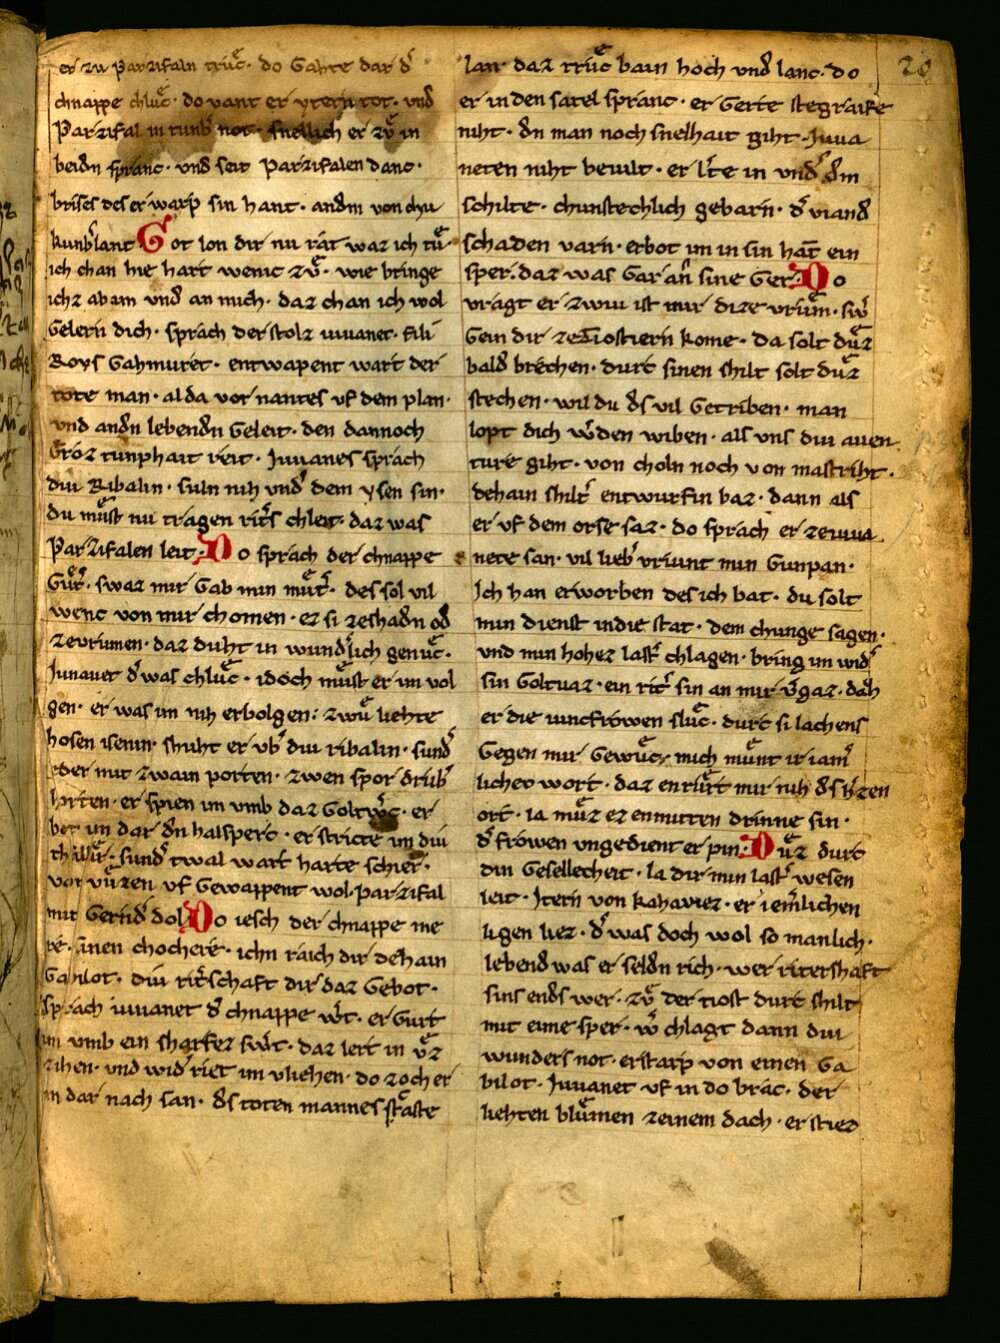 20
er zu Parzifaln truͤc · do Gahte dar dˀ
chnappe chluͤc · do vant er ytern tot · vnd
Parzifal in tunbˀ not · snellich er zuͤ in
beidn spranc · vnd seit Parzifalen danc ·
brises des erwarp sin hant · andm von chu
kunbˀlant Got lon dir nu rat waz ich tuͤ ·
ich chan hie hart wenic zuͤ · wie bringe
ichz abam vnd an mich · daz chan ich wol
Gelern dich · sprach der stolz iuuanet · fili
Roys Gahmuret · entwapent wart der
tote man · alda vor nantes vf dem plan ·
vnd andn lebendn Geleit · den dannoch
Groz tunphait reit · Iuuanes sprach
diu Ribalin · suln niht vndˀ dem ysen sin ·
du muͤst nu tragen ritˀs chleit · daz was
Parzifalen leit · Do sprach der chnappe
Guͤt · swaz mir Gab min muͤtˀ · des sol vil
wenc von mir chomen · ez si zeshadn od
zevrumen · daz duht in wundˀlich genuͤc ·
Iuuanet dˀ was chluͤc · idoch muͤst er im vol
gen · er was im nih erbolgen : zwuͤ liehte
hosen isenin · shuht er vbˀ diu ribalin · sundˀ
leder mit zwain porten · zwen spor drubˀ
horten · er spien im vmb daz Goltwˀc · er
bot im dar dn halsperc · er stricte im diu
sundˀ twal wart harte schier ·
von vuͤzen vf Gewappent wol Parzifal
mit Gerndˀ dol Do iesch der chnappe me
re · ainen chochere · ichn raich dir dehain
Gabilot · diu ritˀschaft dir daz Gebot ·
sprach iuuanet dˀ chnappe wˀt · er Gurt
im vmb ein sharfez swˀt · daz lert in vͤz
zihen · vnd widˀ riet im vliehen · do zoch er
in dar nach san · ds toten mannes staͤste
lan · daz truͤc bain hoch vnd lanc · do
er in den satel spranc · er Gerte stegraife
niht · dn man noch snelhait giht · Iuua
neten niht beuilt · er lˀte in vndˀ dm
schilte · chunstechlich gebarn · dˀ viand
schaden varn · erbot im in sin hat ein
sper · daz was Gar an sine Ger · Do
vragt er zwiu ist mir dize vrum · swˀ
Gein dir zeTiostiern kome · da solt duͤz
bald brechen · durc sinen shilt solt duͤz
stechen · wil du ds vil Getriben · man
lopt dich vˀden wiben · als vns diu auen
ture giht · von choln noch von mastriht ·
dehain shiltˀ entwurfin baz · dann als
er vf dem orse saz · do sprach er zeiuua
nete san · vil liebˀ vriunt min Gunpan ·
Ich han erworben des ich bat · du solt
min dienst indie stat · dem chunge sagen ·
vnd min hohez lastˀ chlagen · bring im widˀ
sin Goltuaz · ein ritˀ sin an mir vˀgaz · dah
er die iuncfrowen sluͤc · durc si lachens
Gegen mir Gewuͤc · mich muͤnt ir iamˀ
licher wort · daz enruͤrt mir nih ds hˀzen
ort · ia muͤz ez enmitten drinne sin ·
dˀ frowen vngedient er pin · Duͤz durc
din Gesellecheit · la dir min lastˀ wesen
leit · Itern von kahaviez · er iemˀlichen
ligen liez · dˀ was doch wol so manlich ·
lebend was er seldn rich · wer ritershaft
sins ends wer · zuͤ der tiost durc shilt
mit eime sper · wˀ chlagt dann diu
wunders not · erstarp von einen Ga
bilot · Iuuanet vf in do brac · der
liehten bluͤmen zeinem dach · er stiez